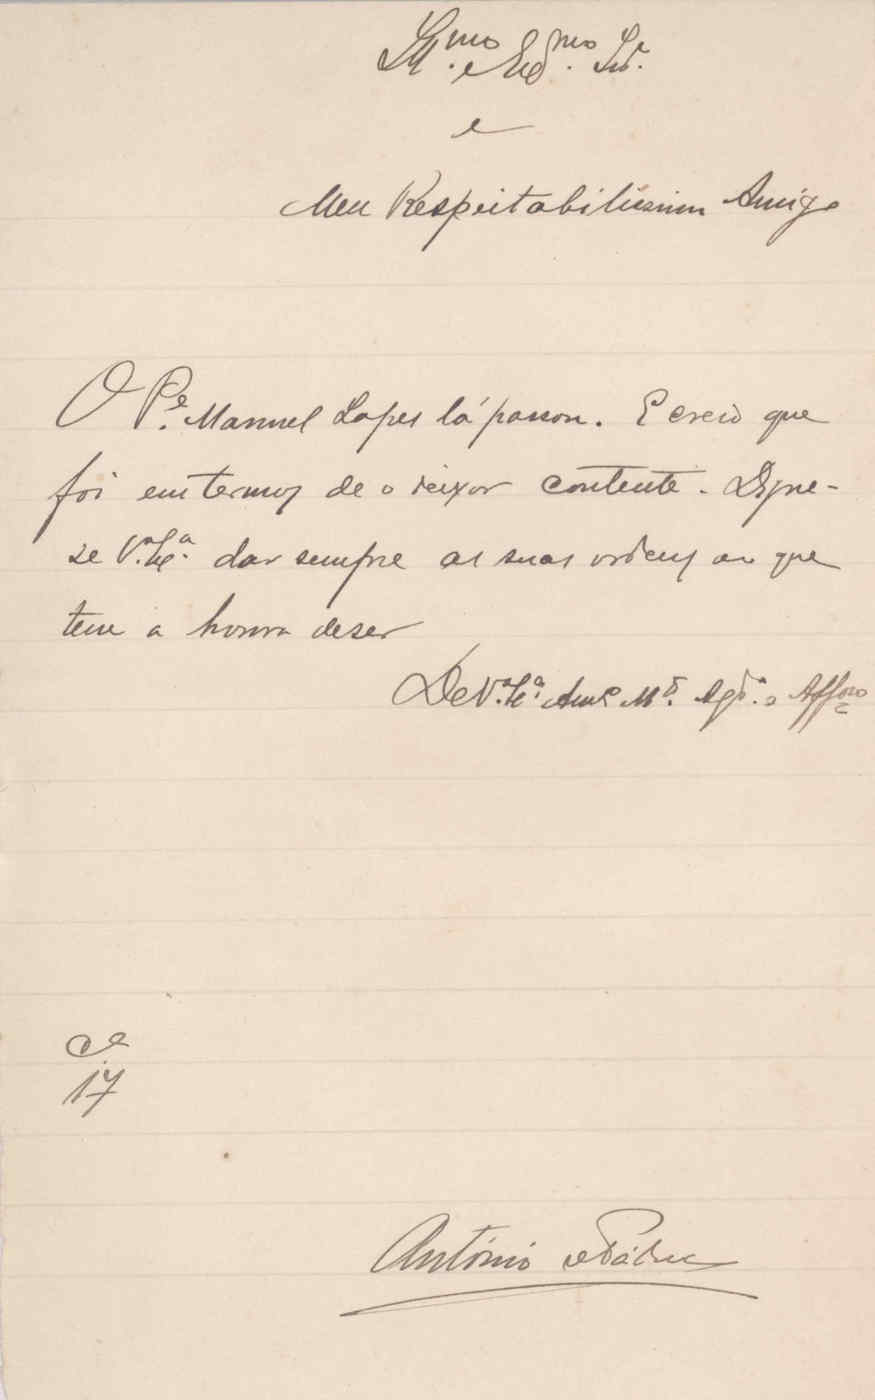 Ill.mo e Ex.mo Sr.
e
Meu Respeitabilissimo Amigo
O P.e Manuel Lopes lá passou. E creio que
foi em termos de o deixar contente. Digne-
se V.a Ex.a dar sempre as suas ordens ao que
tem a honra de ser
De V.a Ex.a Am.o M.to e Aff.oso
17
António de Pádua